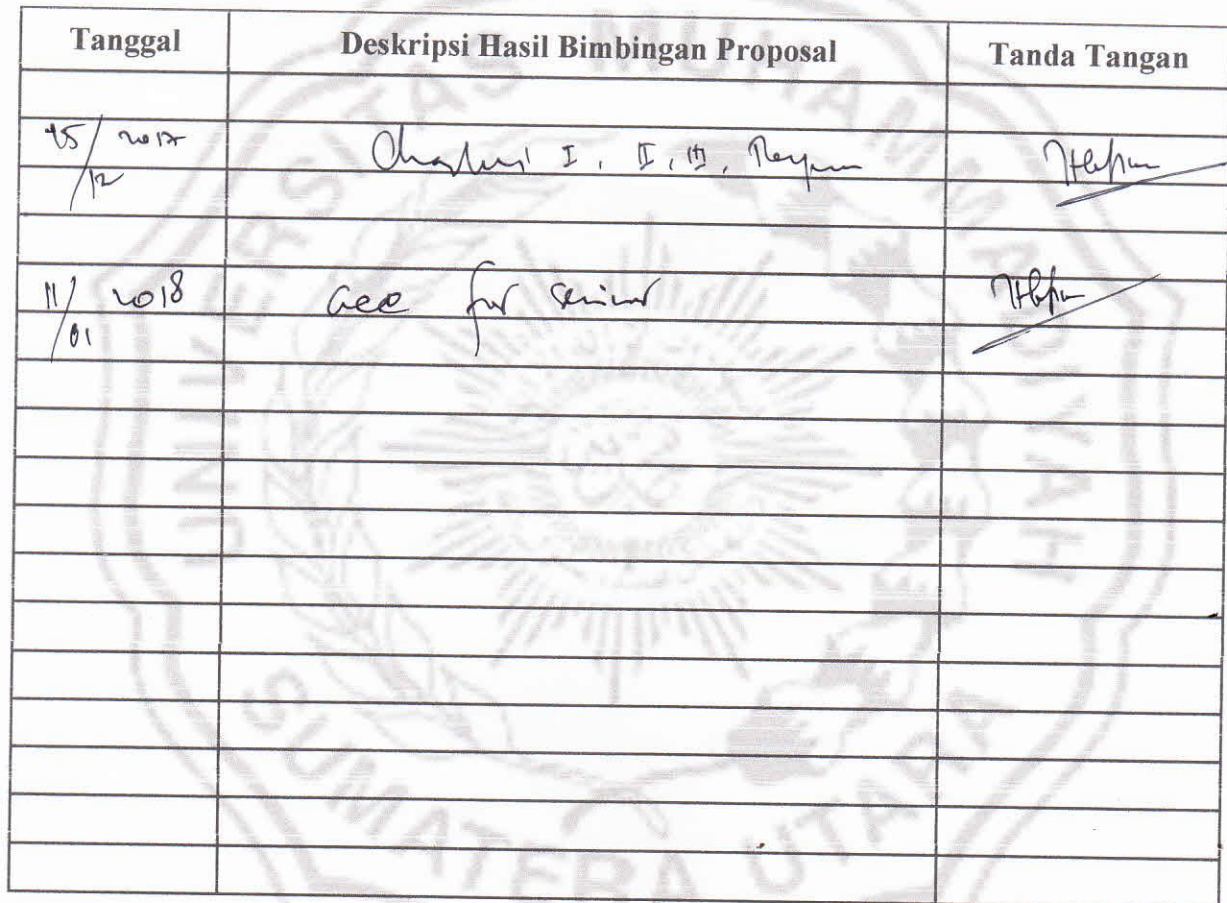 Tanggal Deskripsi Hasil Bimbingan Proposal Tanda Tangan
2017 I, II, III,
12
11/ 2018 acc for seminar
01
UNIVERSITAS MUHAMMADIYAH
SUMATERA UTARA